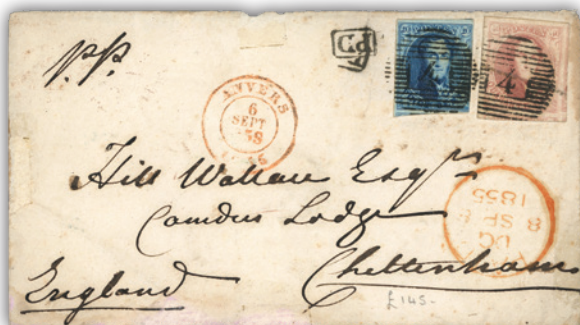 p.p.
PD
4
4
ANVERS
6
SEPT
58
Hill Wallace Esqre
Camden Lodge
Cheltenham
England
DG
8 SP 8
1855
£145-